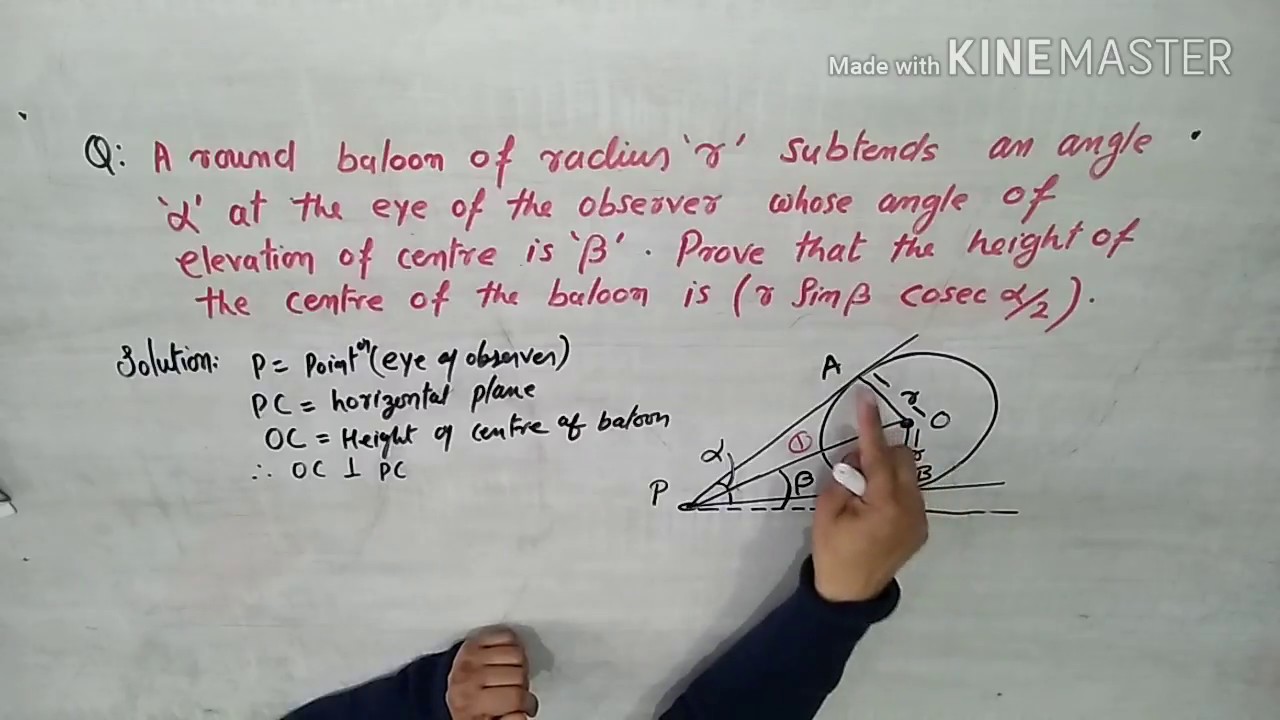 Made with KINEMASTER
Q: A round baloon of radius 'r' subtends an angle
'α' at the eye of the observer whose angle of
elevation of centre is 'β'. Prove that the height of
the centre of the baloon is (r Sinβ cosec α/2).
Solution: P = Point (eye of observer)
PC = horizontal plane
OC = Height of centre of baloon
∴ OC ⊥ PC
A
r
O
①
α
r
β
B
P